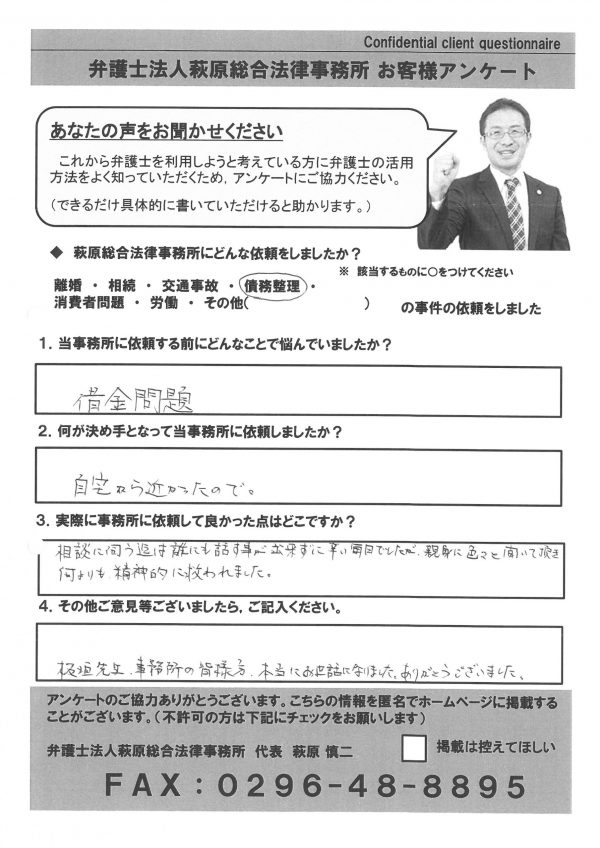 Confidential client questionnaire
弁護士法人萩原総合法律事務所 お客様アンケート
あなたの声をお聞かせください
これから弁護士を利用しようと考えている方に弁護士の活用
方法をよく知っていただくため，アンケートにご協力ください。
（できるだけ具体的に書いていただけると助かります。）
◆ 萩原総合法律事務所にどんな依頼をしましたか？
※ 該当するものに○をつけてください
離婚 ・ 相続 ・ 交通事故 ・ 債務整理 ・
消費者問題 ・ 労働 ・ その他( ) の事件の依頼をしました
1．当事務所に依頼する前にどんなことで悩んでいましたか？
借金問題
2．何が決め手となって当事務所に依頼しましたか？
自宅から近かったので。
3．実際に事務所に依頼して良かった点はどこですか？
相談に伺う迄は誰にも話す事が出来ずに辛い毎日でしたが、親身に色々と聞いて頂き
何よりも、精神的に救われました。
4．その他ご意見等ございましたら，ご記入ください。
板垣先生、事務所の皆様方、本当にお世話になりました。ありがとうございました。
アンケートのご協力ありがとうございます。こちらの情報を匿名でホームページに掲載する
ことがございます。（不許可の方は下記にチェックをお願いします）
弁護士法人萩原総合法律事務所 代表 萩原 慎二
掲載は控えてほしい
FAX：0296-48-8895